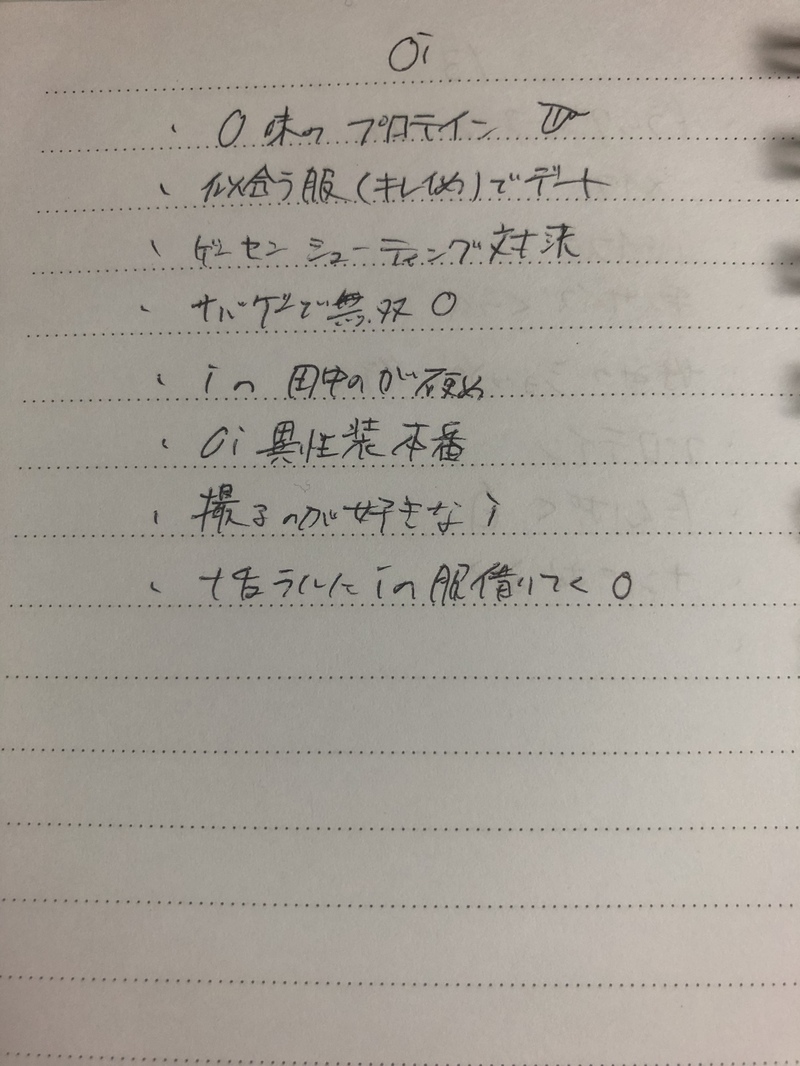 Oi
・O味の プロテイン
・似合う服(キレイめ)でデート
・ゲーセン シューティング対決
・サバゲーで無双 O
・iの 田中のが硬め
・Oi 異性装本番
・撮るのが好きな i
・iの服借りてく O